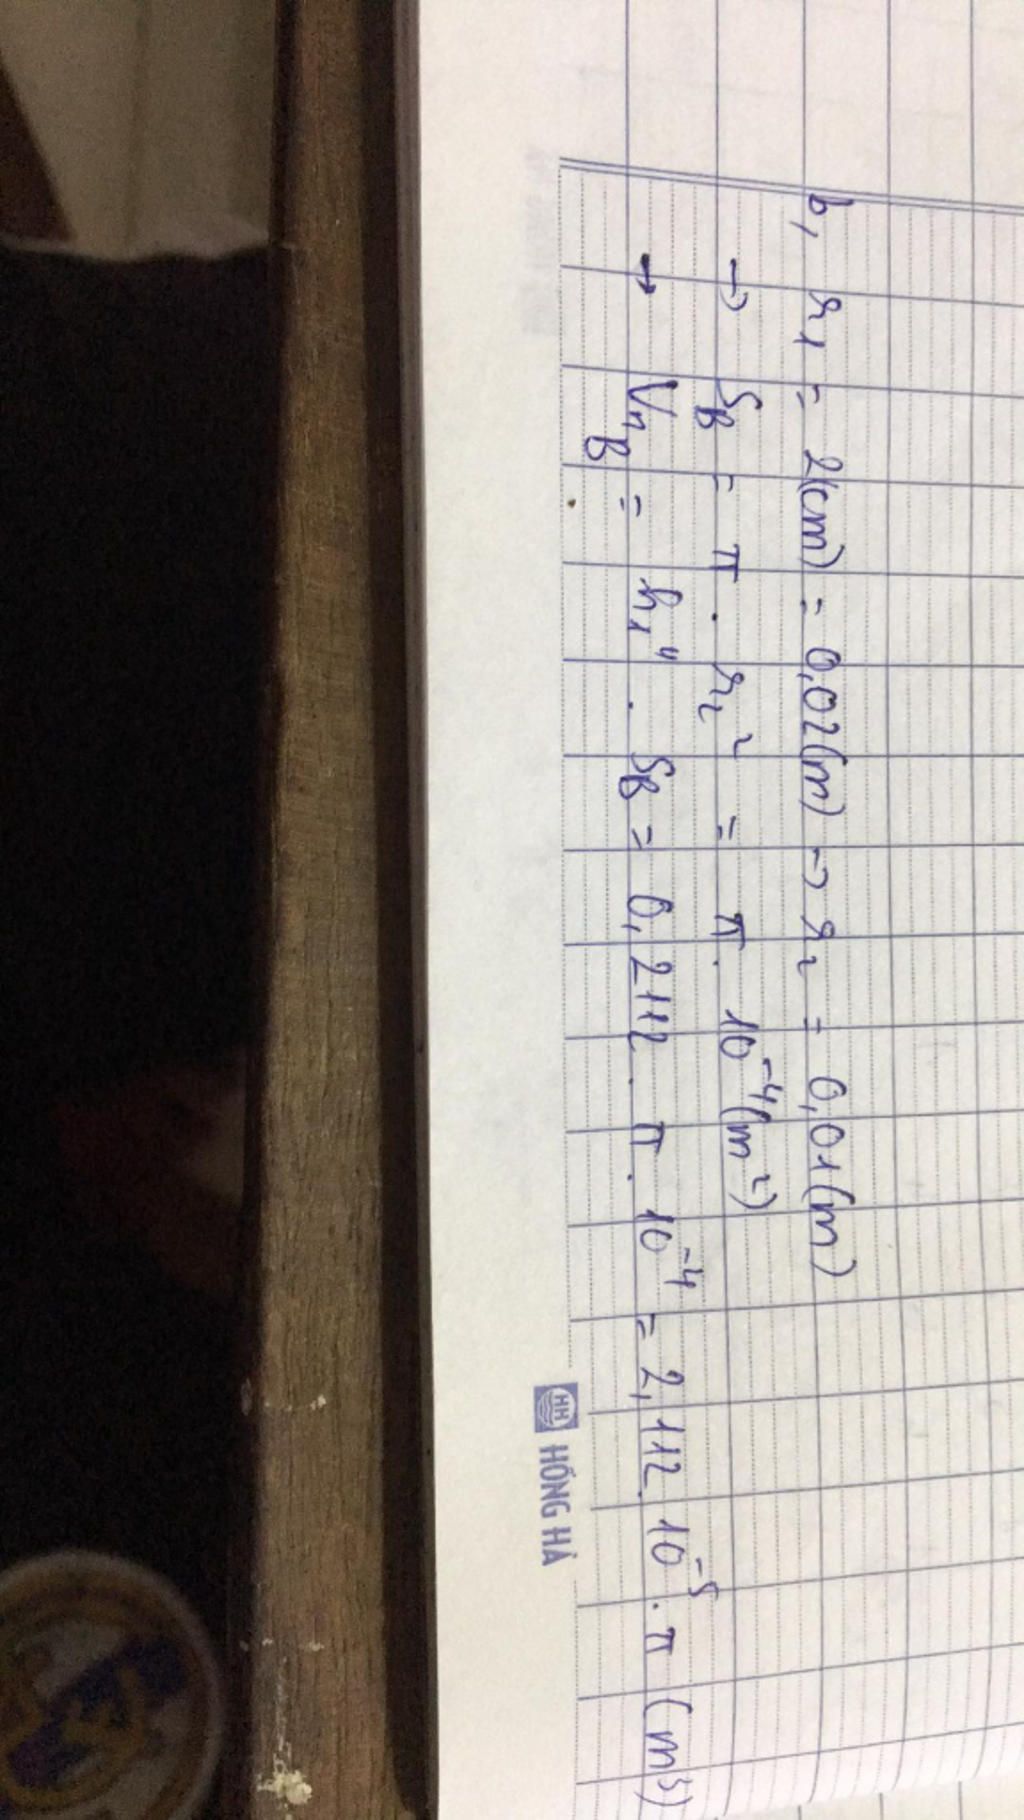 b, r₁ = 2(cm) = 0,02(m) → r₂ = 0,01(m)
→ S_B = π . r₂² = π . 10⁻⁴(m²)
→ V_{n_B} = h₁" . S_B = 0,2112 . π . 10⁻⁴ = 2,112 . 10⁻⁵ . π (m³)
HỒNG HÀ